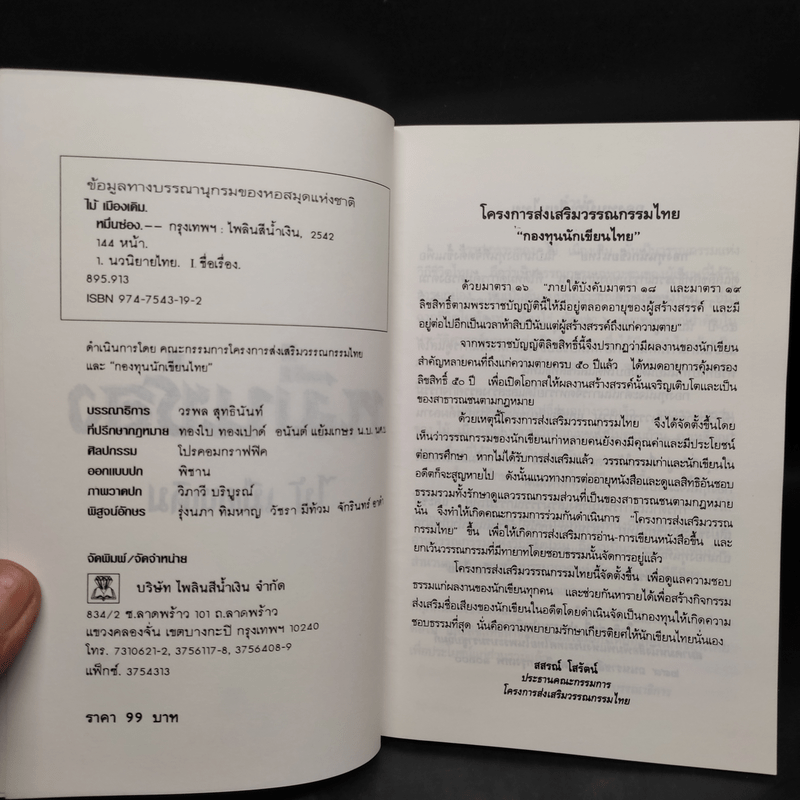 ข้อมูลทางบรรณานุกรมของหอสมุดแห่งชาติ
ไม้ เมืองเดิม.
หมื่นซ่อง.-- กรุงเทพฯ : ไพลินสีน้ำเงิน, 2542
144 หน้า.
1. นวนิยายไทย. I. ชื่อเรื่อง.
895.913
ISBN 974-7543-19-2
ดำเนินการโดย คณะกรรมการโครงการส่งเสริมวรรณกรรมไทย
และ "กองทุนนักเขียนไทย"
บรรณาธิการ วรพล สุทธินันท์
ที่ปรึกษากฎหมาย ทองใบ ทองเปาด์ อนันต์ แย้มเกษร น.บ.
ศิลปกรรม โปรคอมกราฟฟิค
ออกแบบปก พิชาน
ภาพวาดปก วิภาวี บริบูรณ์
พิสูจน์อักษร รุ่งนภา ทิมหาญ วัชรา มีท้วม จักรินทร์
จัดพิมพ์/จัดจำหน่าย
บริษัท ไพลินสีน้ำเงิน จำกัด
834/2 ซ.ลาดพร้าว 101 ถ.ลาดพร้าว
แขวงคลองจั่น เขตบางกะปิ กรุงเทพฯ 10240
โทร. 7310621-2, 3756117-8, 3756408-9
แฟ็กซ์. 3754313
ราคา 99 บาท
โครงการส่งเสริมวรรณกรรมไทย
"กองทุนนักเขียนไทย"
ด้วยมาตรา ๑๖ "ภายใต้บังคับมาตรา ๑๘ และมาตรา ๑๙
ลิขสิทธิ์ตามพระราชบัญญัตินี้ให้มีอยู่ตลอดอายุของผู้สร้างสรรค์ และมี
อยู่ต่อไปอีกเป็นเวลาห้าสิบปีนับแต่ผู้สร้างสรรค์ถึงแก่ความตาย"
จากพระราชบัญญัติลิขสิทธิ์นี้จึงปรากฏว่ามีผลงานของนักเขียน
สำคัญหลายคนที่ถึงแก่ความตายครบ ๕๐ ปีแล้ว ได้หมดอายุการคุ้มครอง
ลิขสิทธิ์ ๕๐ ปี เพื่อเปิดโอกาสให้ผลงานสร้างสรรค์นั้นเจริญเติบโตและเป็น
ของสาธารณชนตามกฎหมาย
ด้วยเหตุนี้โครงการส่งเสริมวรรณกรรมไทย จึงได้จัดตั้งขึ้นโดย
เห็นว่าวรรณกรรมของนักเขียนเก่าหลายคนยังคงมีคุณค่าและมีประโยชน์
ต่อการศึกษา หากไม่ได้รับการส่งเสริมแล้ว วรรณกรรมเก่าและนักเขียนใน
อดีตก็จะสูญหายไป ดังนั้นแนวทางการต่ออายุหนังสือและดูแลสิทธิอันชอบ
ธรรมรวมทั้งรักษาดูแลวรรณกรรมส่วนที่เป็นของสาธารณชนตามกฎหมาย
นั้น จึงทำให้เกิดคณะกรรมการร่วมกันดำเนินการ "โครงการส่งเสริมวรรณ
กรรมไทย" ขึ้น เพื่อให้เกิดการส่งเสริมการอ่าน-การเขียนหนังสือขึ้น และ
ยกเว้นวรรณกรรมที่มีทายาทโดยชอบธรรมนั้นจัดการอยู่แล้ว
โครงการส่งเสริมวรรณกรรมไทยนี้จัดตั้งขึ้น เพื่อดูแลความชอบ
ธรรมแก่ผลงานของนักเขียนทุกคน และช่วยกันหารายได้เพื่อสร้างกิจกรรม
ส่งเสริมชื่อเสียงของนักเขียนในอดีตโดยดำเนินจัดเป็นกองทุนให้เกิดความ
ชอบธรรมที่สุด นั่นคือความพยายามรักษาเกียรติยศให้นักเขียนไทยนั่นเอง
สสรณ์ โสรัตน์
ประธานคณะกรรมการ
โครงการส่งเสริมวรรณกรรมไทย